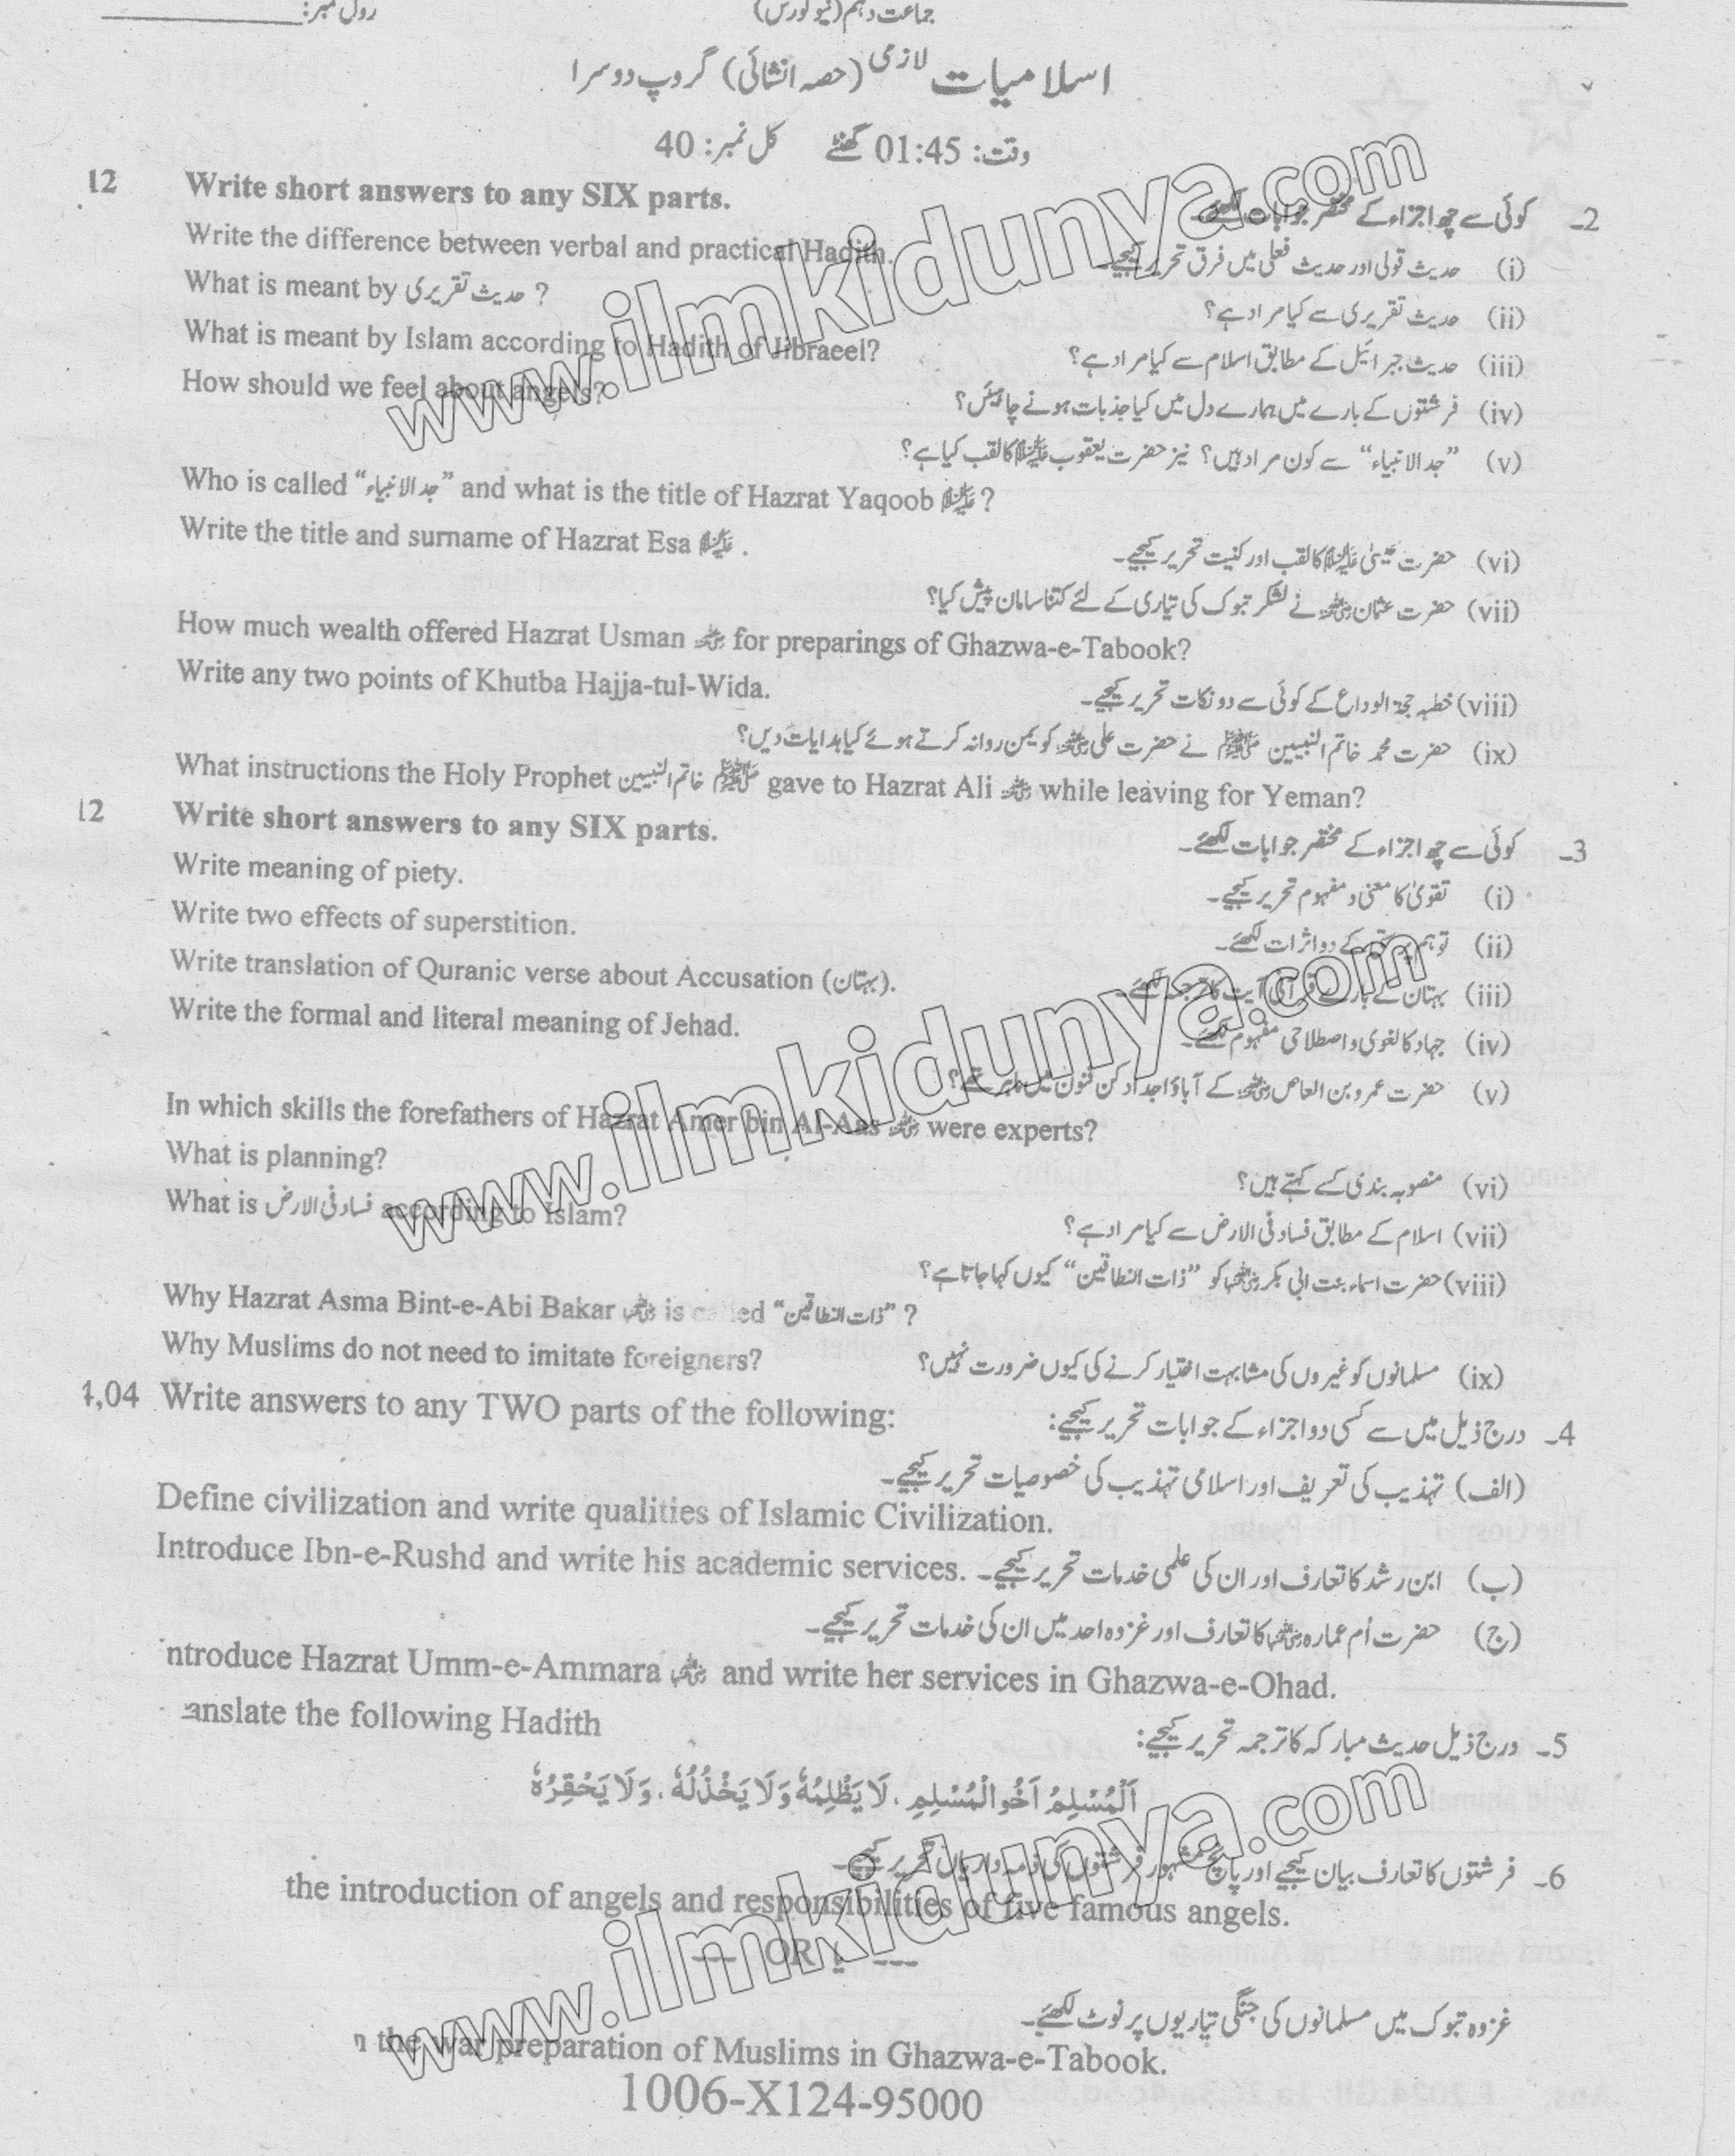 رول نمبر: ____________
جماعت دہم (نیو کورس)
اسلامیات لازمی (حصہ انشائی) گروپ دوسرا
وقت: 01:45 گھنٹے کل نمبر: 40
12 Write short answers to any SIX parts. 2۔ کوئی سے چھ اجزاء کے مختصر جوابات لکھئے۔
Write the difference between verbal and practical Hadith. (i) حدیث قولی اور حدیث فعلی میں فرق تحریر کیجیے۔
What is meant by حدیث تقریری ? (ii) حدیث تقریری سے کیا مراد ہے؟
What is meant by Islam according to Hadith of Jibraeel? (iii) حدیث جبرائیل کے مطابق اسلام سے کیا مراد ہے؟
How should we feel about angels? (iv) فرشتوں کے بارے میں ہمارے دل میں کیا جذبات ہونے چاہئیں؟
(v) ”جد الانبیاء“ سے کون مراد ہیں؟ نیز حضرت یعقوب علیہ السلام کا لقب کیا ہے؟
Who is called “جد الانبیاء” and what is the title of Hazrat Yaqoob علیہ السلام ?
Write the title and surname of Hazrat Esa علیہ السلام . (vi) حضرت عیسیٰ علیہ السلام کا لقب اور کنیت تحریر کیجیے۔
(vii) حضرت عثمان رضی اللہ عنہ نے لشکر تبوک کی تیاری کے لئے کتنا سامان پیش کیا؟
How much wealth offered Hazrat Usman رضی اللہ عنہ for preparings of Ghazwa-e-Tabook?
Write any two points of Khutba Hajja-tul-Wida. (viii) خطبہ حجۃ الوداع کے کوئی سے دو نکات تحریر کیجیے۔
(ix) حضرت محمد خاتم النبیین ﷺ نے حضرت علی رضی اللہ عنہ کو یمن روانہ کرتے ہوئے کیا ہدایات دیں؟
What instructions the Holy Prophet خاتم النبیین ﷺ gave to Hazrat Ali رضی اللہ عنہ while leaving for Yeman?
12 Write short answers to any SIX parts. 3۔ کوئی سے چھ اجزاء کے مختصر جوابات لکھئے۔
Write meaning of piety. (i) تقویٰ کا معنی و مفہوم تحریر کیجیے۔
Write two effects of superstition. (ii) توہم پرستی کے دو اثرات لکھئے۔
Write translation of Quranic verse about Accusation (بہتان). (iii) بہتان کے بارے قرآنی آیت کا ترجمہ لکھئے۔
Write the formal and literal meaning of Jehad. (iv) جہاد کا لغوی و اصطلاحی مفہوم لکھئے۔
(v) حضرت عمرو بن العاص رضی اللہ عنہ کے آباؤ اجداد کن فنون میں ماہر تھے؟
In which skills the forefathers of Hazrat Amer bin Al-Aas رضی اللہ عنہ were experts?
What is planning? (vi) منصوبہ بندی کسے کہتے ہیں؟
What is فساد فی الارض according to Islam? (vii) اسلام کے مطابق فساد فی الارض سے کیا مراد ہے؟
(viii) حضرت اسماء بنت ابی بکر رضی اللہ عنہا کو ”ذات النطاقین“ کیوں کہا جاتا ہے؟
Why Hazrat Asma Bint-e-Abi Bakar رضی اللہ عنہا is called “ذات النطاقین” ?
Why Muslims do not need to imitate foreigners? (ix) مسلمانوں کو غیروں کی مشابہت اختیار کرنے کی کیوں ضرورت نہیں؟
4,04 Write answers to any TWO parts of the following: 4۔ درج ذیل میں سے کسی دو اجزاء کے جوابات تحریر کیجیے:
(الف) تہذیب کی تعریف اور اسلامی تہذیب کی خصوصیات تحریر کیجیے۔
Define civilization and write qualities of Islamic Civilization.
Introduce Ibn-e-Rushd and write his academic services. (ب) ابن رشد کا تعارف اور ان کی علمی خدمات تحریر کیجیے۔
(ج) حضرت اُم عمارہ رضی اللہ عنہا کا تعارف اور غزوہ احد میں ان کی خدمات تحریر کیجیے۔
ntroduce Hazrat Umm-e-Ammara رضی اللہ عنہا and write her services in Ghazwa-e-Ohad.
anslate the following Hadith 5۔ درج ذیل حدیث مبارکہ کا ترجمہ تحریر کیجیے:
اَلْمُسْلِمُ اَخُو الْمُسْلِمِ ، لَا يَظْلِمُهٗ وَلَا يَخْذُلُهٗ ، وَلَا يَحْقِرُهٗ
6۔ فرشتوں کا تعارف بیان کیجیے اور پانچ مشہور فرشتوں کی ذمہ داریاں تحریر کیجیے۔
the introduction of angels and responsibilities of five famous angels.
--- OR یا ---
غزوہ تبوک میں مسلمانوں کی جنگی تیاریوں پر نوٹ لکھئے۔
n the war preparation of Muslims in Ghazwa-e-Tabook.
1006-X124-95000
www.ilmkidunya.com
www.ilmkidunya.com
www.ilmkidunya.com